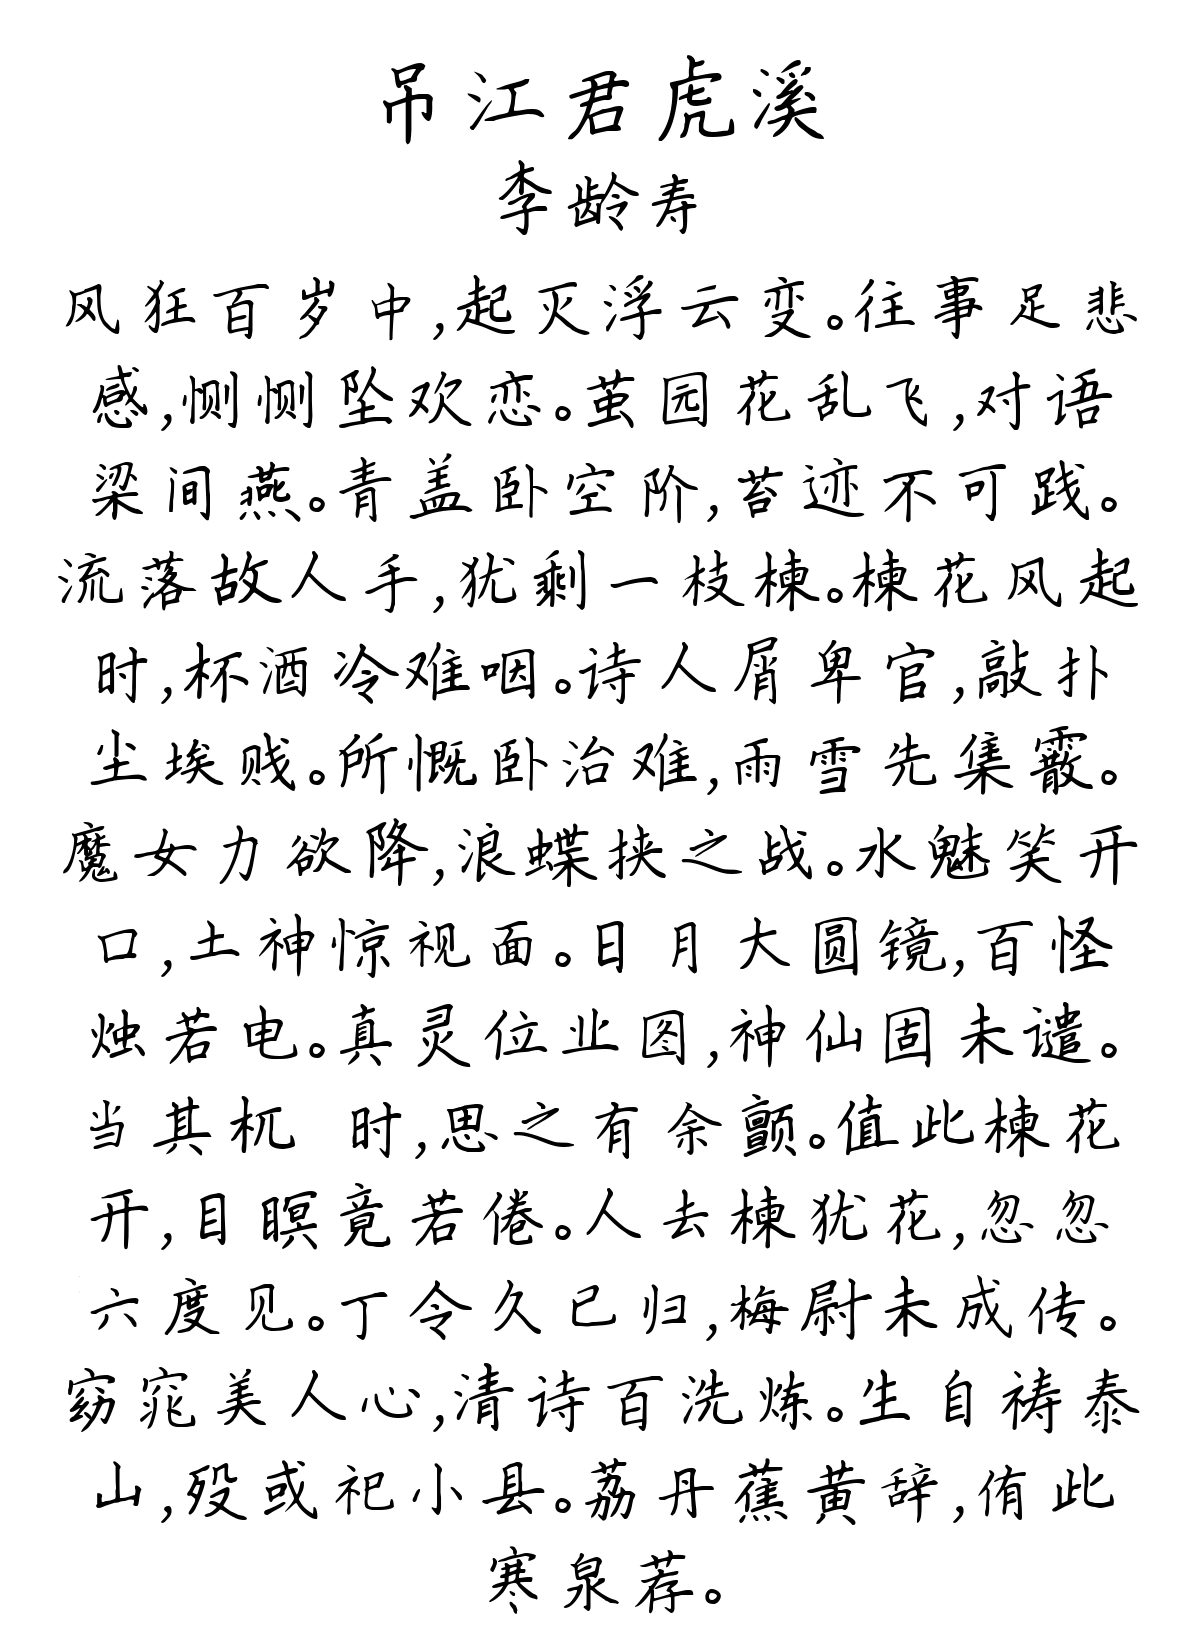 吊江君虎溪
李龄寿
风狂百岁中,起灭浮云变。往事足悲
感,恻恻坠欢恋。茧园花乱飞,对语
梁间燕。青盖卧空阶,苔迹不可践。
流落故人手,犹剩一枝楝。楝花风起
时,杯酒冷难咽。诗人屑卑官,敲扑
尘埃贱。所慨卧治难,雨雪先集霰。
魔女力欲降,浪蝶挟之战。水魅笑开
口,土神惊视面。日月大圆镜,百怪
烛若电。真灵位业图,神仙固未谴。
当其杌 时,思之有余颤。值此楝花
开,目瞑竟若倦。人去楝犹花,忽忽
六度见。丁令久已归,梅尉未成传。
窈窕美人心,清诗百洗炼。生自祷泰
山,殁或祀小县。荔丹蕉黄辞,侑此
寒泉荐。